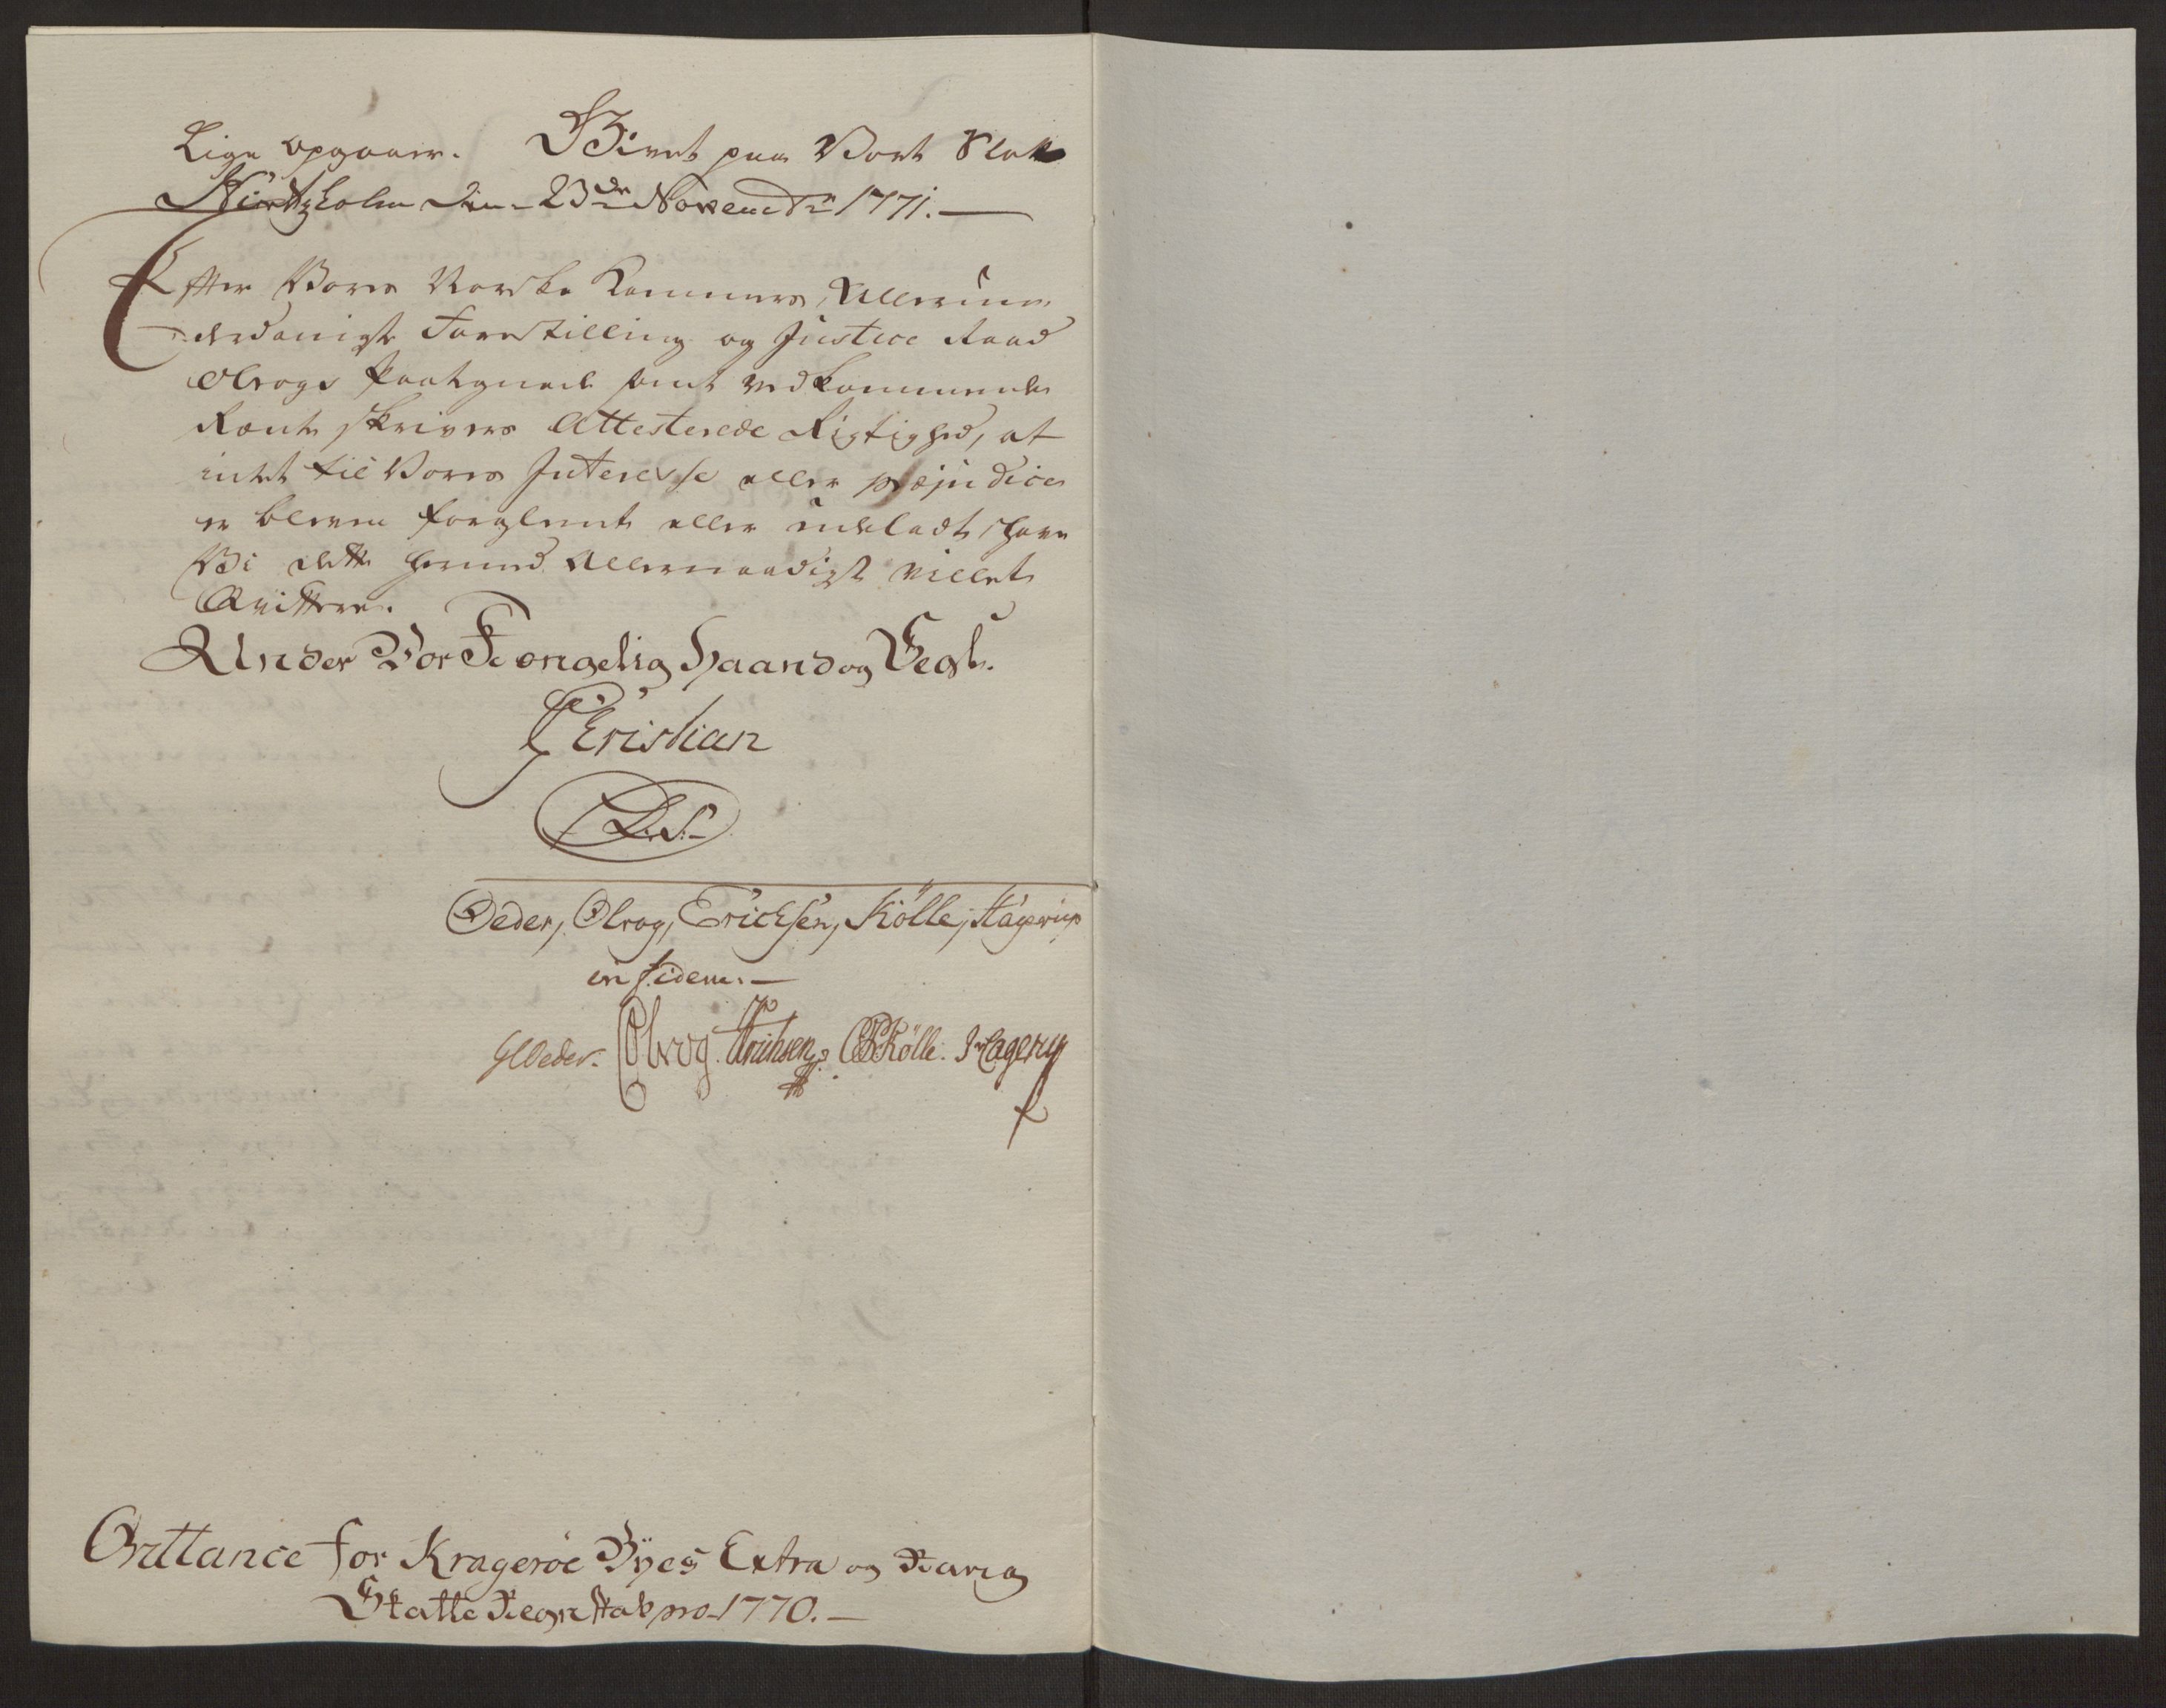 Lige opgaaer. Givet paa Vort Slott
Hirtzholm den 23de Novembr 1771.
Efter Vores Norske Kammers Allerun-
derdanigste Forestilling og Justice Raad
Olrogs Paategnede samt vedkommende
Rente skrivers Attesterede Rigtighed, at
intet til Vores Interesse eller præjudice
er bleven forglemt eller udeladt, have
Vi dette hermed Allernaadigst villet
Qvittere.
Under Vor Kongelig Haand og Segl.
Christian
L.S.
Oeder, Olrog, Erichsen, Kölle, Hagerup
in fidem.
GCOeder. Olrog. Erichsen. Kölle. Hagerup
Qvittance for Kragerøe Byes Extra og Karrog
Skatte Regnskab pro 1770.